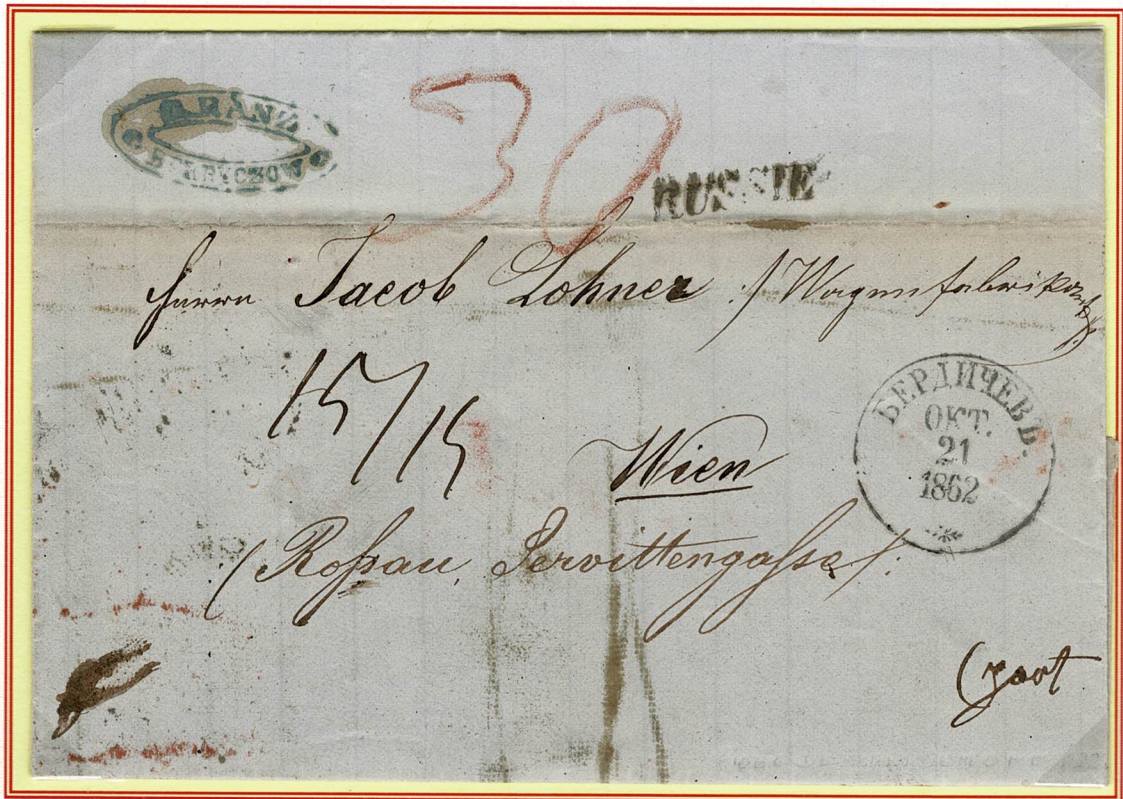 RANZ
30
RUSSIE
Herrn Jacob Lohner / Wagenfabrikant
15/15
БЕРДИЧЕВЪ.
ОКТ.
21
1862
Wien
(Roßau, Servittengasse/.